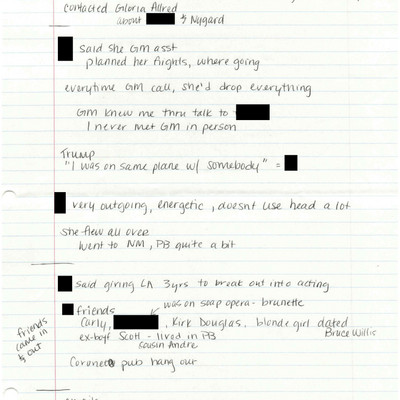 contacted Gloria Allred
about & Nygard
said she GM asst
planned her flights, where going
everytime GM call, she'd drop everything
GM knew me thru talk to
I never met GM in person
Trump
"I was on same plane w/ somebody" =
very outgoing, energetic, doesnt use head a lot
she flew all over
went to NM, PB quite a bit
said giving LA 3yrs to break out into acting
was on soap opera - brunette
friends
Carly, , Kirk Douglas, blonde girl dated Bruce Willis
ex-boyf Scott - lived in PB
cousin Andre
friends came in & out
pub hang out